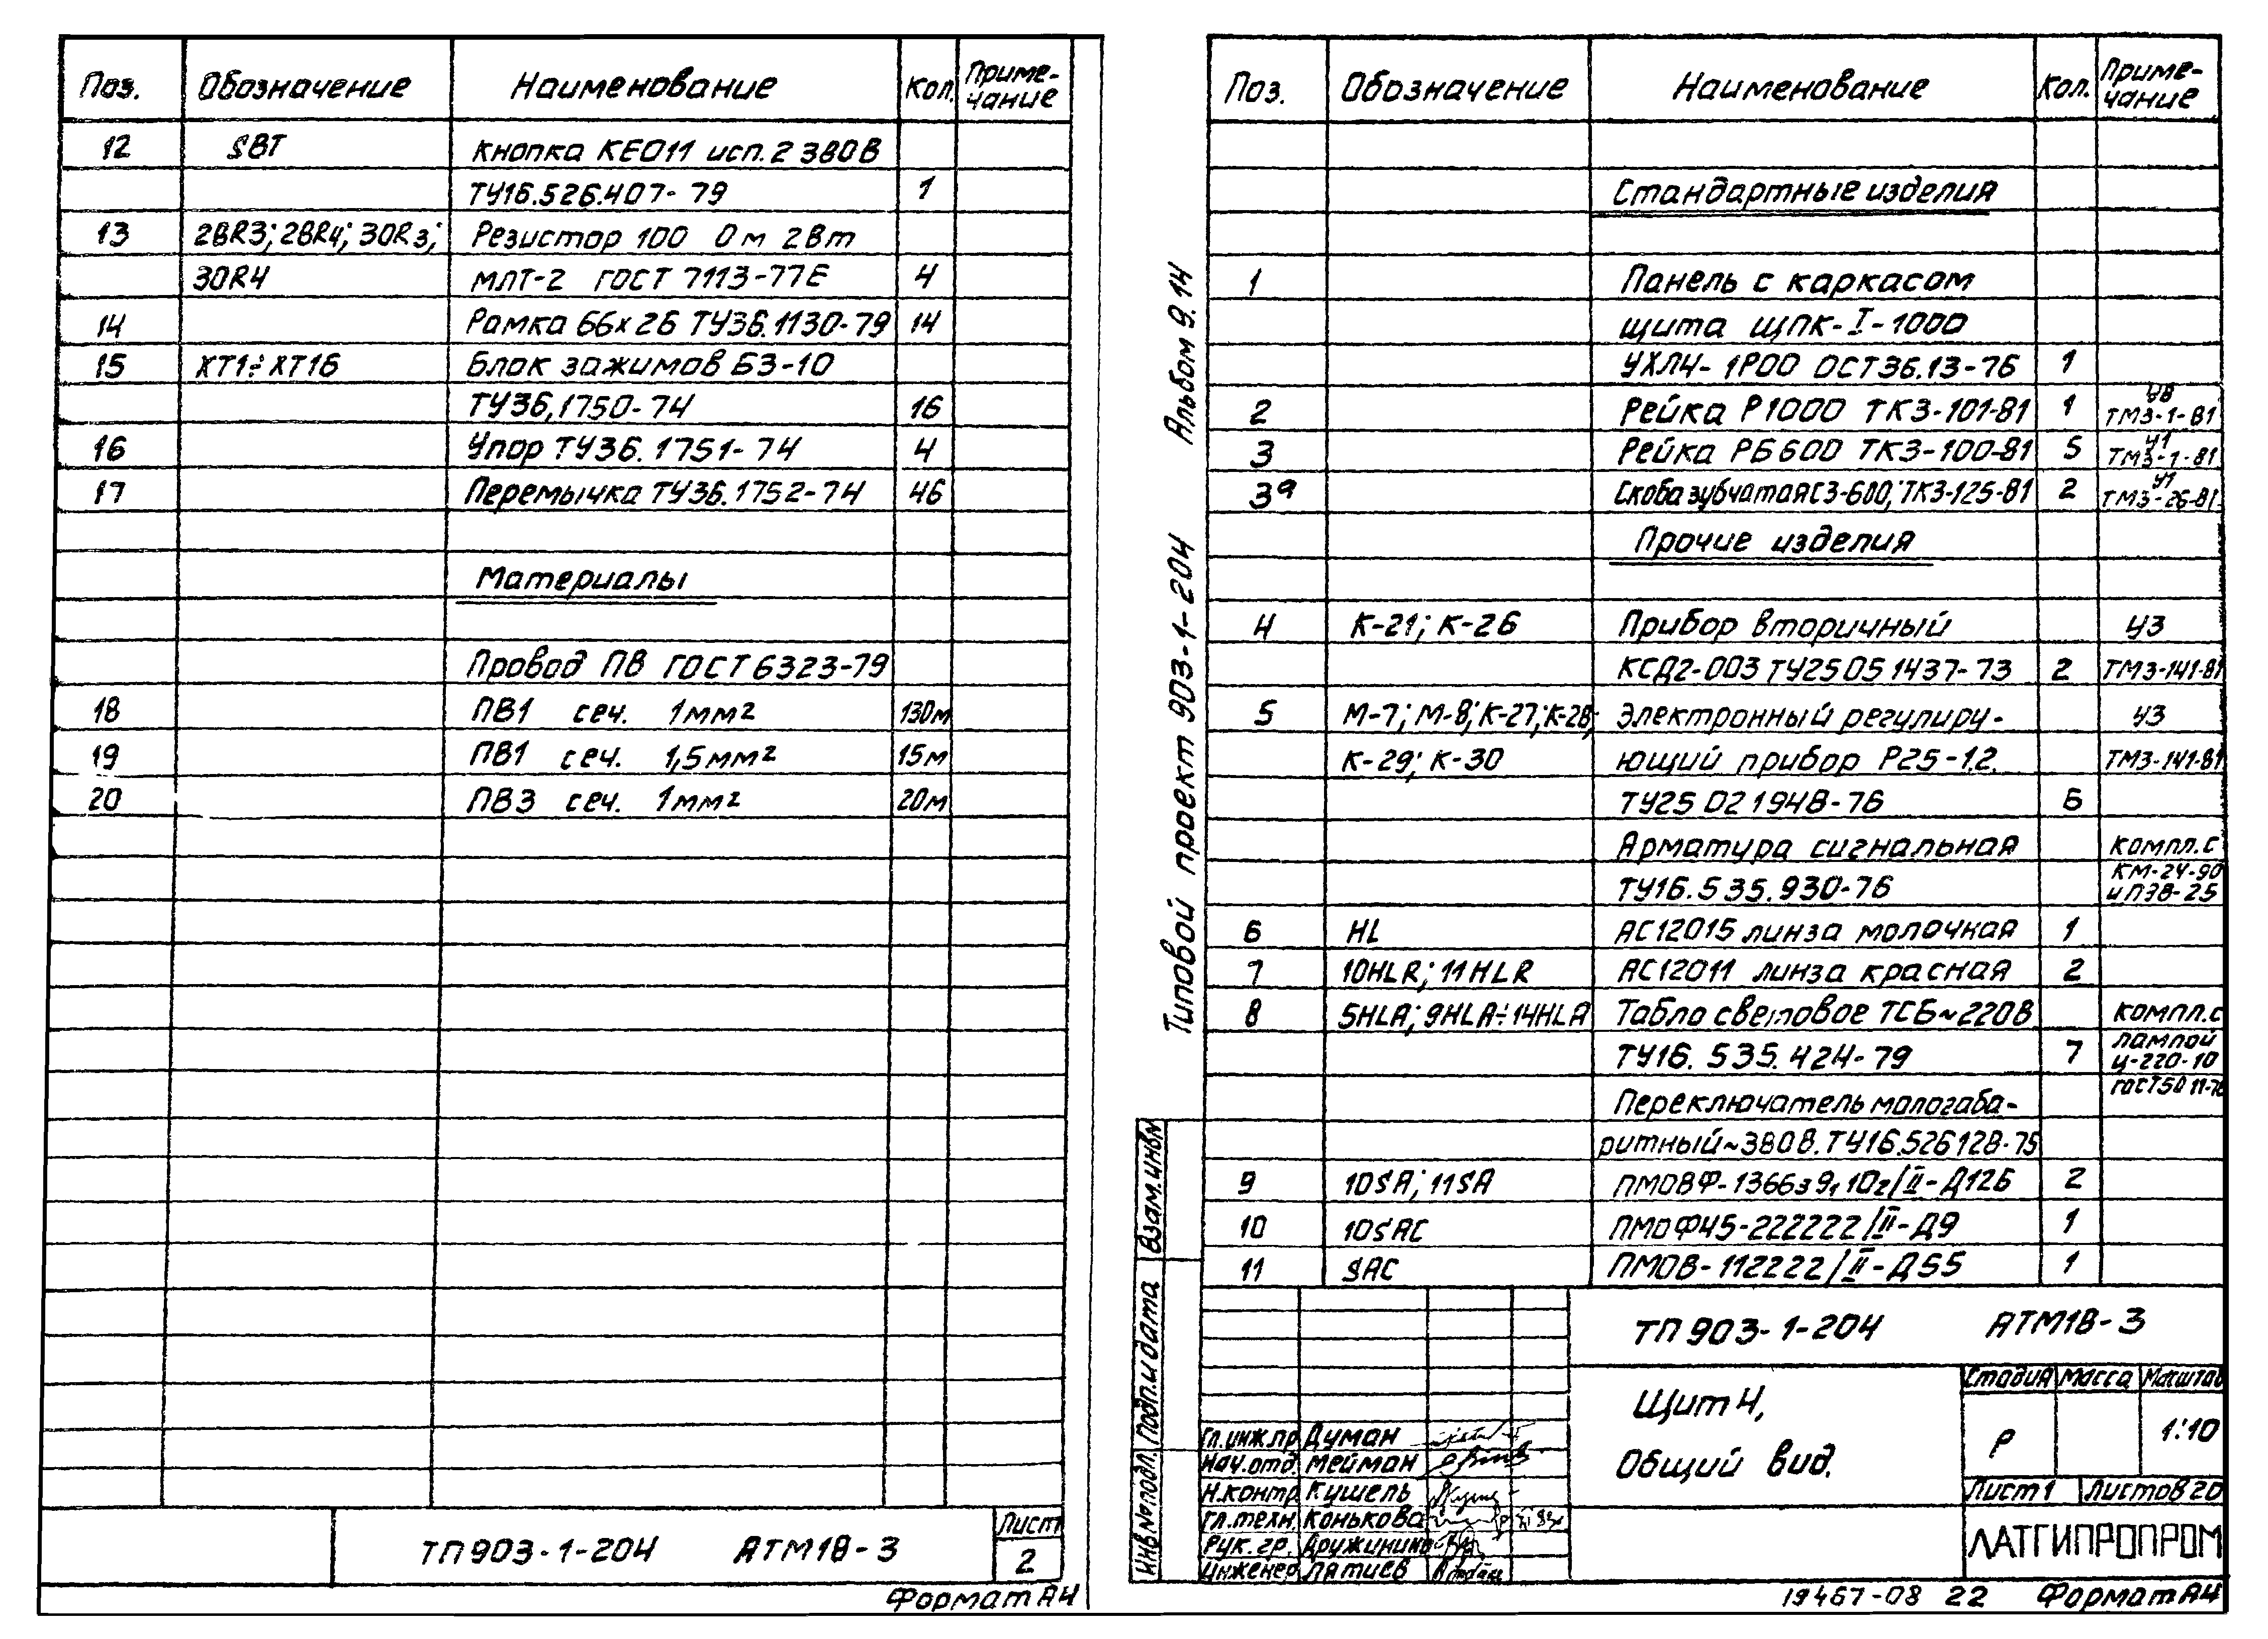 Поз. Обозначение Наименование Кол. Приме-
чание
12 SBT Кнопка КЕ011 исп. 2 380В
ТУ16.526.407-79 1
13 28R3; 28R4; 30R3; Резистор 100 Ом 2Вт
30R4 МЛТ-2 ГОСТ 7113-77Е 4
14 Рамка 66х26 ТУ36.1130-79 14
15 ХТ1÷ХТ16 Блок зажимов БЗ-10
ТУ36,1750-74 16
16 Упор ТУ36.1751-74 4
17 Перемычка ТУ36.1752-74 46
Материалы
Провод ПВ ГОСТ 6323-79
18 ПВ1 сеч. 1мм² 130м
19 ПВ1 сеч. 1,5мм² 15м
20 ПВ3 сеч. 1мм² 20м
ТП903-1-204 АТМ18-3 Лист
2
Формат А4
Типовой проект 903-1-204 Альбом 9.14
Поз. Обозначение Наименование Кол. Приме-
чание
Стандартные изделия
1 Панель с каркасом
щита ЩПК-I-1000
УХЛ4-1Р00 ОСТ36.13-76 1
2 Рейка Р1000 ТК3-101-81 1 У8
ТМ3-1-81
3 Рейка РБ600 ТК3-100-81 5 У1
ТМ3-1-81
3а Скоба зубчатая СЗ-600; ТК3-125-81 2 У1
ТМ3-26-81
Прочие изделия
4 К-21; К-26 Прибор вторичный У3
КСД2-003 ТУ25 05 1437-73 2 ТМ3-141-81
5 М-7; М-8; К-27; К-28; Электронный регулиру- У3
К-29; К-30 ющий прибор Р25-1.2. ТМ3-141-81
ТУ25 02 1948-76 6
Арматура сигнальная компл. с
ТУ16.535.930-76 КМ-24-90
и ПЭВ-25
6 HL АС12015 линза молочная 1
7 10HLR; 11HLR АС12011 линза красная 2
8 5HLA; 9HLA÷14HLA Табло световое ТСБ~220В компл. с
ТУ16.535.424-79 7 лампой
Ц-220-10
ГОСТ50 11-76
Переключатель малогаба-
ритный~380В. ТУ16.526128-75
9 10SA; 11SA ПМОВФ-1366з9, 10г/II-Д126 2
10 10SAC ПМОФ45-222222/II-Д9 1
11 SAC ПМОВ-112222/II-Д55 1
Взам.инв№
Подп.и дата
Инв.№подл.
ТП903-1-204 АТМ18-3
Щит 4,
Общий вид.
Стадия Масса Масштаб
Р 1:10
Лист 1 Листов 20
ЛАТГИПРОПРОМ
Гл.инж.пр Думан
Нач.отд Мейман
Н.контр Кушель
Гл.техн. Конькова
Рук.гр. Дружинина
Инженер Лятиев
19467-08 22 Формат А4